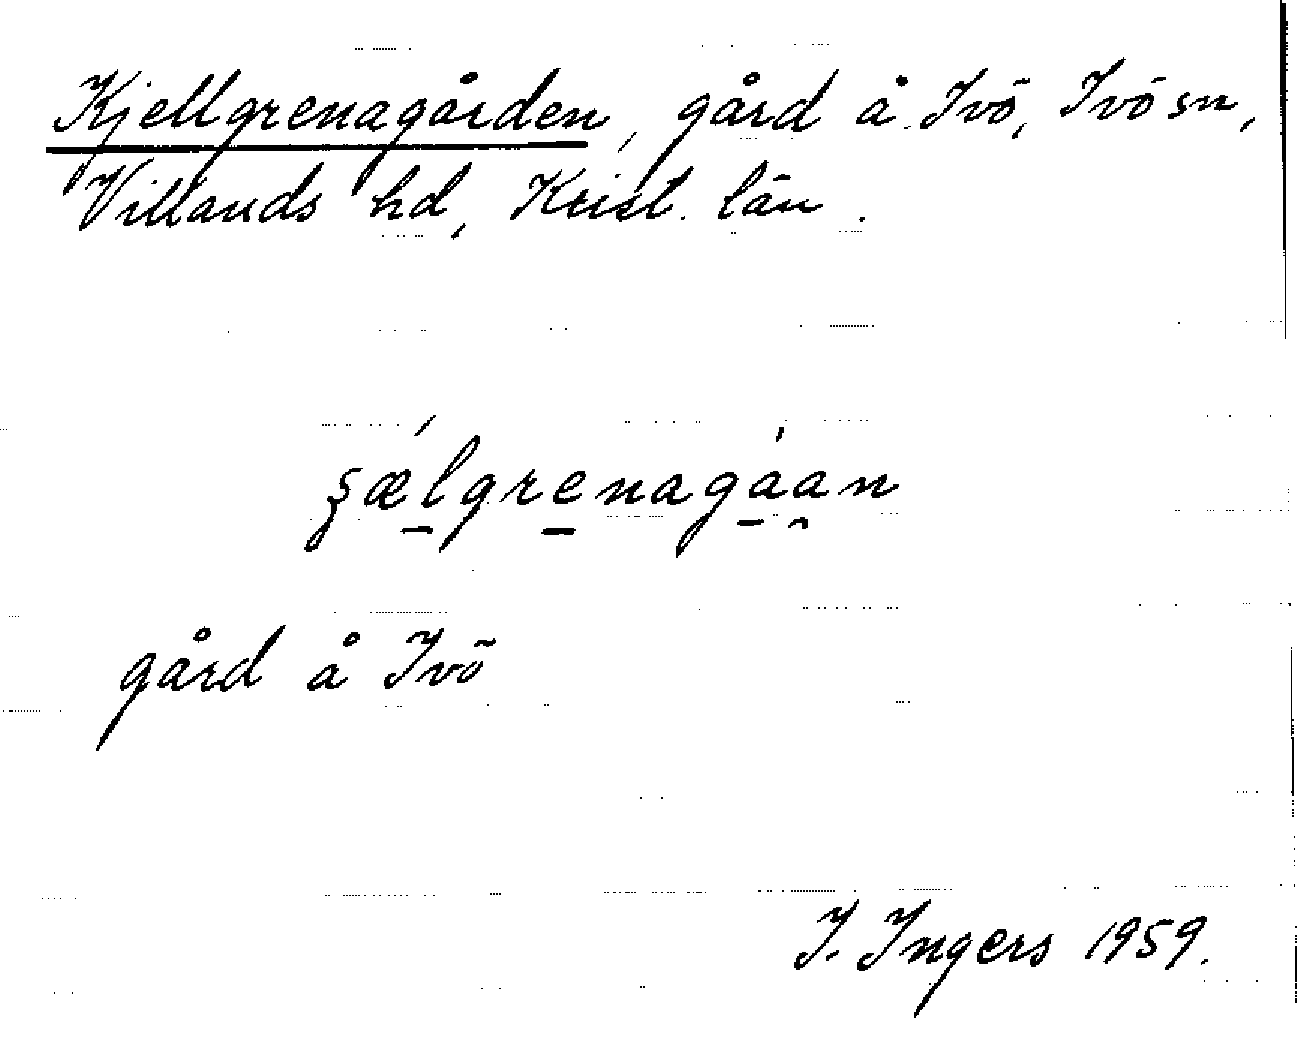 Kjellgrenagården, gård å Ivö, Ivö sn,
Villands hd, Krist. län.
ʂæ̀l̠gre̠nagá̠a̯n
gård å Ivö
I. Ingers 1959.